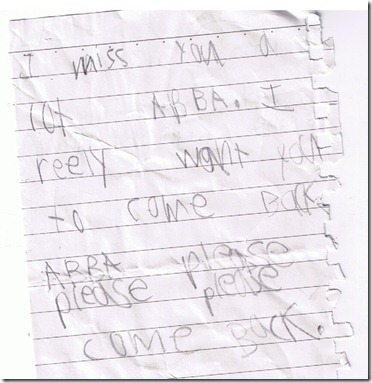 I miss you a
lot ABBA. I
reely want you
to come back
ABBA please
please please
come back.